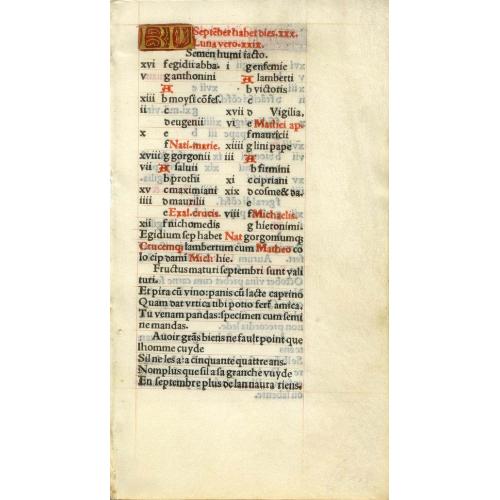 KL Septēber habet dies .xxx.
Luna vero .xxix.
Semen humi iacto.
xvi f egidii abba. i g enfemie
v g anthonini A lamberti
A b victoris
xiii b moysi cōfeſ.
ii c xvii d Vigilia.
d eugenii vi e Mathei ap.
x e f mauricii
f Nati. marie. xiiii g lini pape
xviii g gorgonii iii A
vii A saluii b firmini
b prothii xi c cipriani
xv c maximiani xix d cosme & da.
iiii d maurilii e
e Exal. crucis. viii f Michaelis.
xii f nichomedis g hieronimi.
Egidium sep habet Nat gorgonsumq;
Crucemq; lambertum cum Matheo co
lo cip dami Mich hie.
Fructus maturi septembri sunt vali
turi.
Et pira cū vino: panis cū lacte caprino
Quam dat vrtica tibi potio fert amica.
Tu venam pandas: specimen cum semi
ne mandas.
Auoir grās biens ne fault point que
lhomme cuyde
Sil ne les a a cinquante quattre ans.
Nomplus que sil a sa granche vuyde
En septembre plus de lan naura riens.